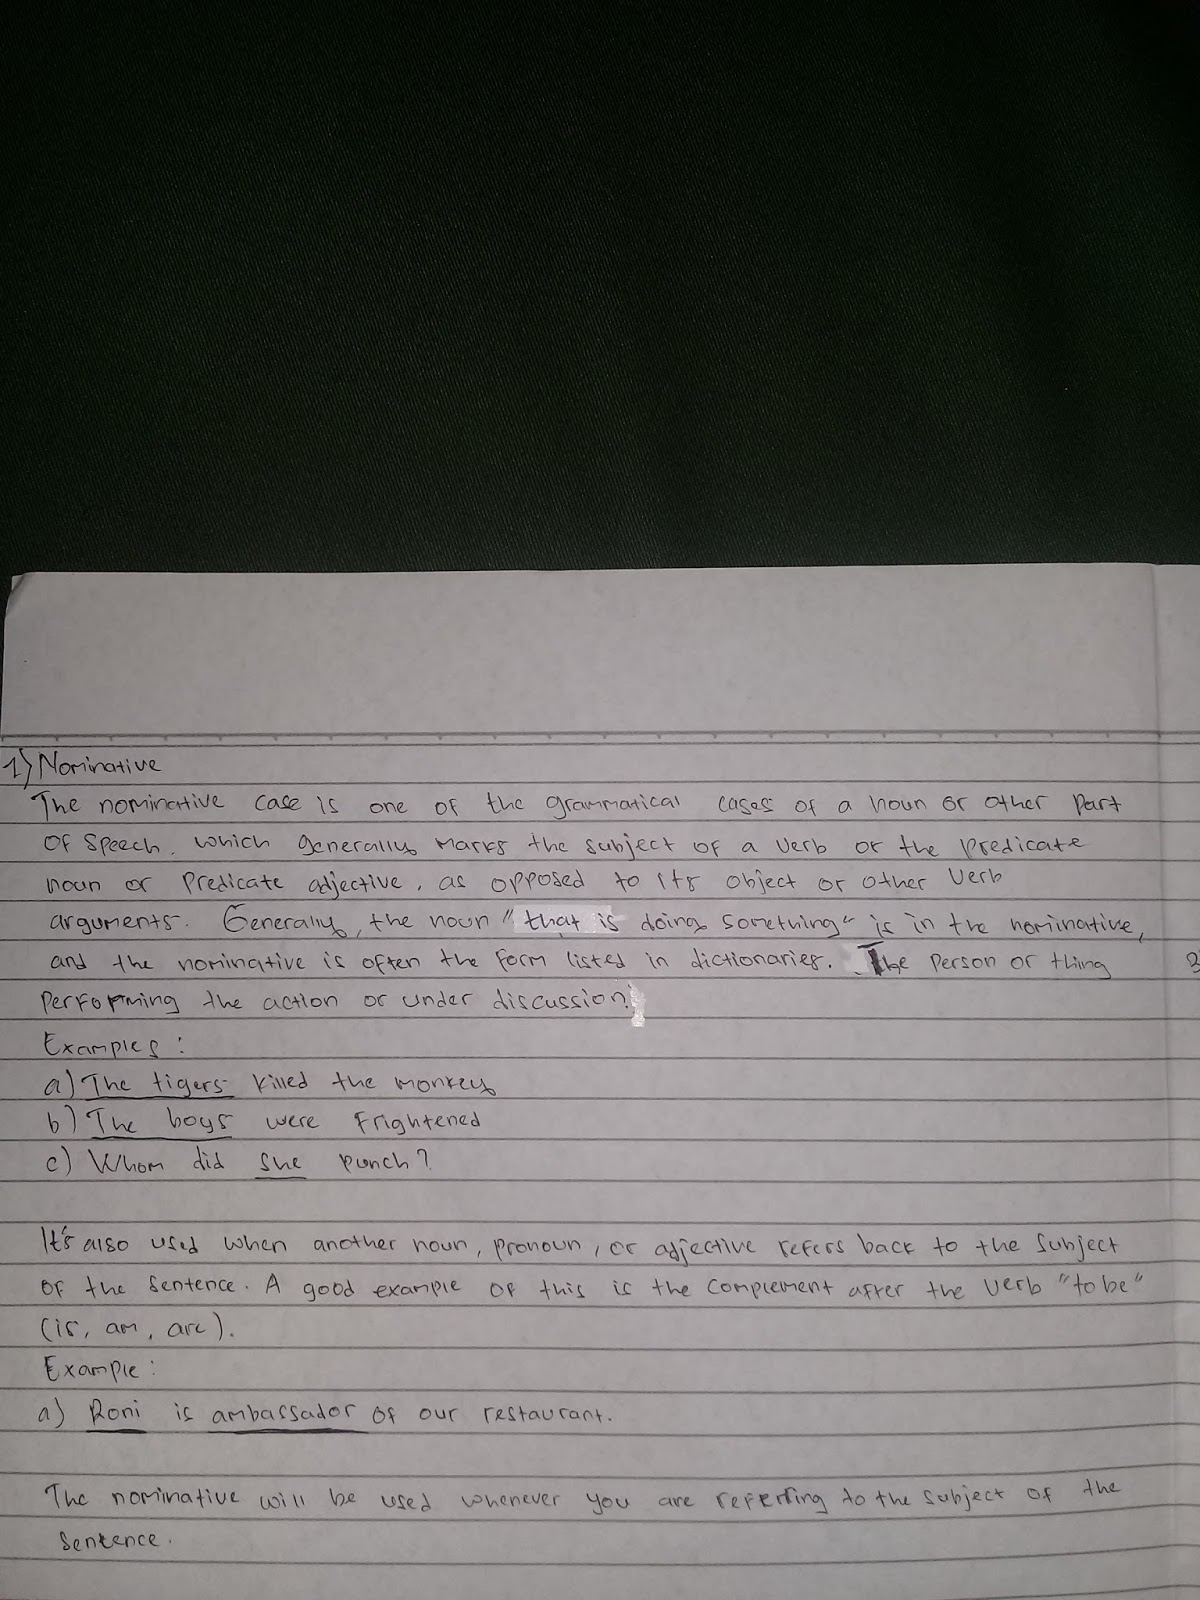 1) Nominative
The nominative case is one of the grammatical cases of a noun or other part
of speech, which generally marks the subject of a verb or the predicate
noun or predicate adjective, as opposed to its object or other verb
arguments. Generally, the noun "that is doing something" is in the nominative,
and the nominative is often the form listed in dictionaries. The person or thing
performing the action or under discussion.
Examples :
a) The tigers killed the monkey
b) The boys were frightened
c) Whom did she punch?
It's also used when another noun, pronoun, or adjective refers back to the subject
of the sentence. A good example of this is the complement after the verb "to be"
(is, am, are).
Example :
a) Roni is ambassador of our restaurant.
The nominative will be used whenever you are referring to the subject of the
sentence.